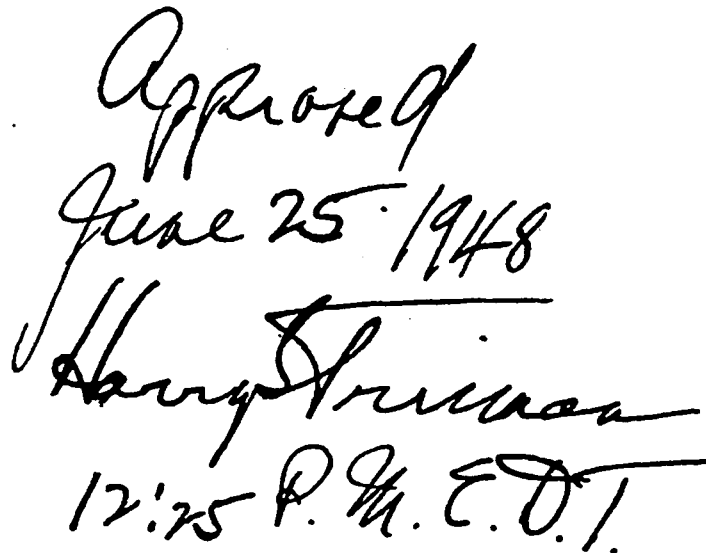 Approved
June 25 1948
Harry S Truman
12:25 P.M. E.D.T.